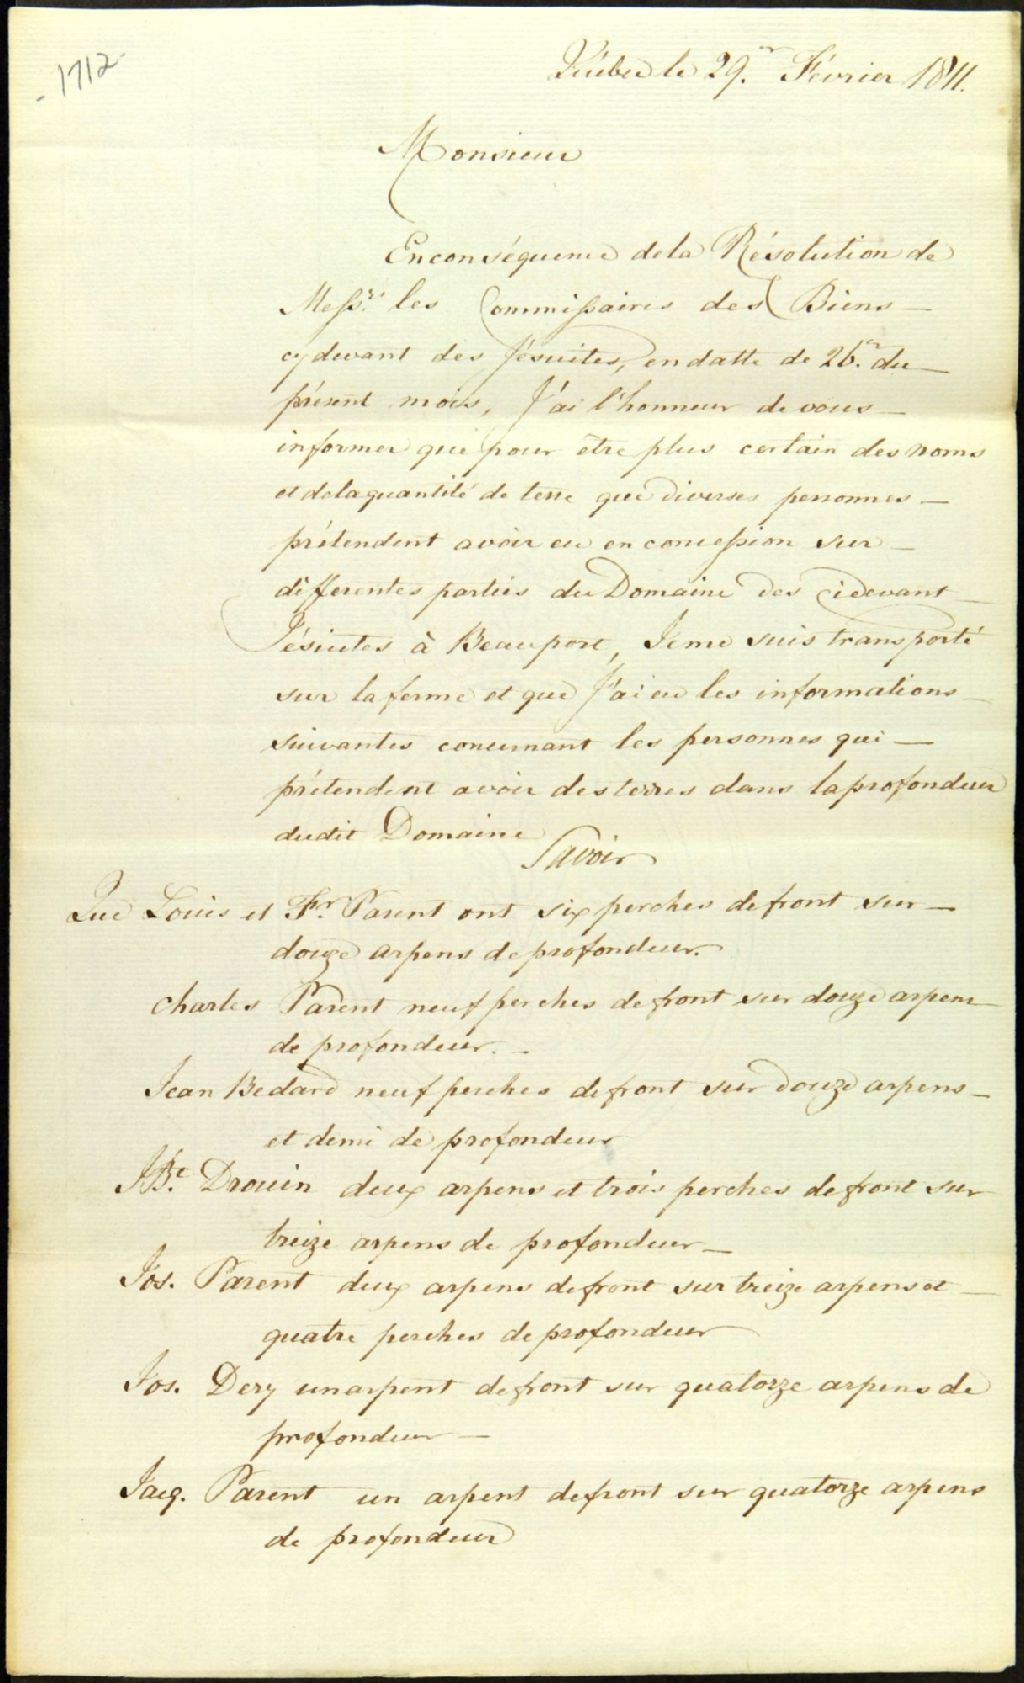 1712
Québec le 29.er Février 1811.
Monsieur
En conséquence de la Résolution de
Messrs. les Commissaires des Biens
cy devant des Jésuites, en datte de 26.er du
présent mois, J'ai l'honneur de vous
informer que pour être plus certain des noms
et de la quantité de terre que diverses personnes
prétendent avoir eu en concession sur
différentes parties du Domaine des cidevant
Jésuites à Beauport, Je me suis transporté
sur la ferme et que J'ai eu les informations
suivantes concernant les personnes qui
prétendent avoir des terres dans la profondeur
dudit Domaine
Savoir
Que Louis et Fr. Parent ont six perches de front sur
douze arpens de profondeur.
Charles Parent neuf perches de front sur douze arpens
de profondeur.
Jean Bedard neuf perches de front sur douze arpens
et demi de profondeur
J Bte. Drouin deux arpens et trois perches de front sur
treize arpens de profondeur
Jos. Parent deux arpens de front sur treize arpens et
quatre perches de profondeur
Jos. Dery un arpent de front sur quatorze arpens de
profondeur
Jacq. Parent un arpent de front sur quatorze arpens
de profondeur